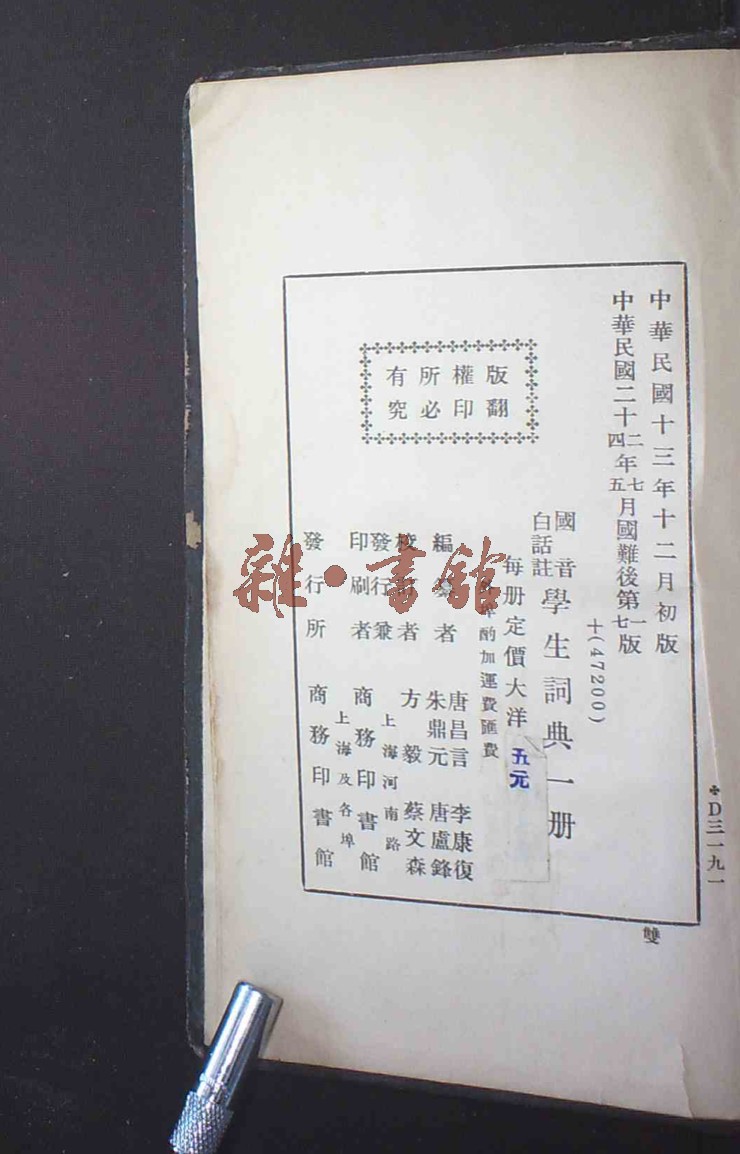 中華民國十三年十二月初版
中華民國二十二年七月國難後第一版
四 五 十七
(47200)
國音
白話註
學生詞典一册
每册定價大洋
五元
酌加運費匯費
版權所有
翻印必究
編纂者
唐昌言 李康復
朱鼎元 唐盧鋒
校訂者
方毅 蔡文森
發行兼
印刷者
上海河南路
商務印書館
發行所
上海及各埠
商務印書館
D三一九一
雙
雜·書館